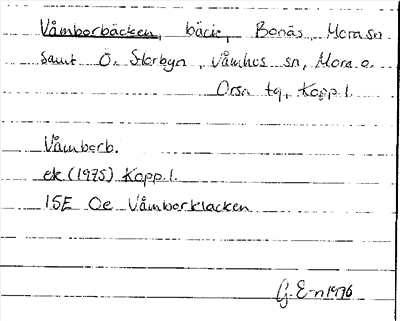 Våmborbäcken, bäck, Bonäs, Mora sn
samt Ö. Storbyn, Våmhus sn, Mora o.
Orsa tg, Kopp. l.
Våmborb.
ek (1975) Kopp. l.
15E Oe Våmborklacken
G. E-n 1976